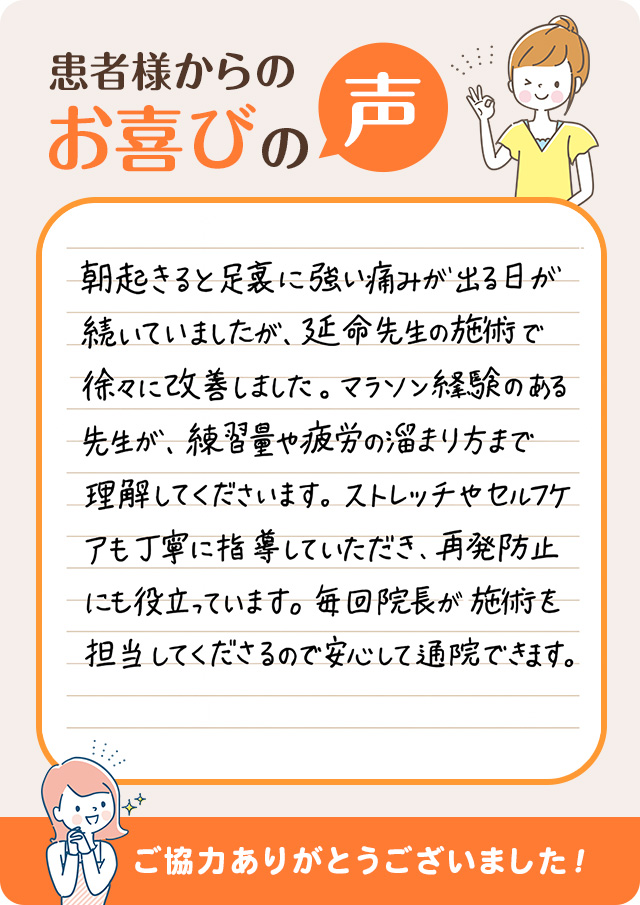 患者様からの
お喜びの
声
朝起きると足裏に強い痛みが出る日が
続いていましたが、延命先生の施術で
徐々に改善しました。マラソン経験のある
先生が、練習量や疲労の溜まり方まで
理解してくださいます。ストレッチやセルフケ
アも丁寧に指導していただき、再発防止
にも役立っています。毎回院長が施術を
担当してくださるので安心して通院できます。
ご協力ありがとうございました!